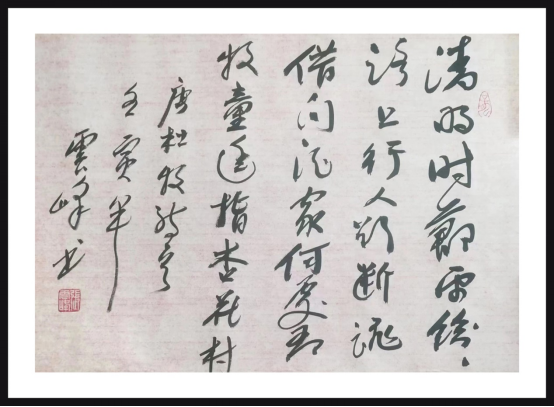 清明时節雨纷々
路上行人欲断魂
借问酒家何處有
牧童遥指杏花村
唐杜牧
壬寅年
雲峰书